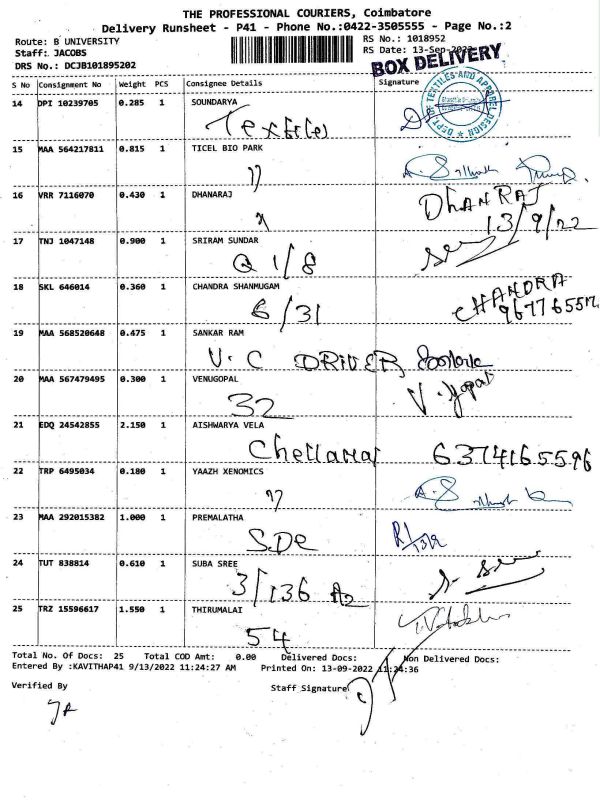 THE PROFESSIONAL COURIERS, Coimbatore
Delivery Runsheet - P41 - Phone No.:0422-3505555 - Page No.:2
Route: B UNIVERSITY
RS No.: 1018952
Staff: JACOBS
RS Date: 13-Sep-2022
DRS No.: DCJB101895202
BOX DELIVERY
S No Consignment No Weight PCS Consignee Details Signature
14 DPI 10239705 0.285 1 SOUNDARYA
Textiles
DEPT. OF TEXTILES AND APPAREL DESIGN
15 MAA 564217811 0.815 1 TICEL BIO PARK
16 VRR 7116070 0.430 1 DHANARAJ
DHANRAJ
13/9/22
17 TNJ 1047148 0.900 1 SRIRAM SUNDAR
Q 1/8
18 SKL 646014 0.360 1 CHANDRA SHANMUGAM
6/31
CHANDRA
19 MAA 568520648 0.475 1 SANKAR RAM
V.C DRIVER
20 MAA 567479495 0.300 1 VENUGOPAL
32
21 EDQ 24542855 2.150 1 AISHWARYA VELA
6374165596
22 TRP 6495034 0.180 1 YAAZH XENOMICS
23 MAA 292015382 1.000 1 PREMALATHA
SDE
24 TUT 838814 0.610 1 SUBA SREE
3/136 A2
25 TRZ 15596617 1.550 1 THIRUMALAI
54
Total No. Of Docs: 25 Total COD Amt: 0.00 Delivered Docs: Non Delivered Docs:
Entered By :KAVITHAP41 9/13/2022 11:24:27 AM Printed On: 13-09-2022 11:24:36
Verified By
Staff Signature